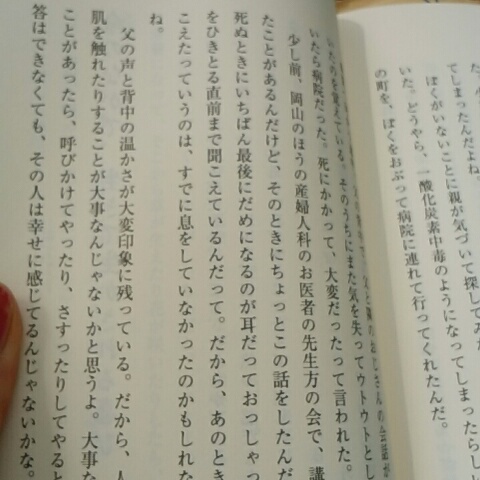 た、小
てしまったんだよね。
ぼくがいないことに親が気づいて探してみた
いた。どうやら、一酸化炭素中毒のようになってしまったらし
の町を、ぼくをおぶって病院に連れて行ってくれたんだ。
父と隣のおじさんの会話が
いたのを覚えている。そのうちにまた気を失ってウトウトとし
いたら病院だった。死にかかって、大変だったって言われた。
少し前、岡山のほうの産婦人科のお医者の先生方の会で、講
たことがあるんだけど、そのときにちょっとこの話をしたんだ
死ぬときにいちばん最後にだめになるのが耳だっておっしゃっ
をひきとる直前まで聞こえているんだって。だから、あのとき
こえたっていうのは、すでに息をしていなかったのかもしれな
ね。
父の声と背中の温かさが大変印象に残っている。だから、人
肌を触れたりすることが大事なんじゃないかと思うよ。大事な
ことがあったら、呼びかけてやったり、さすったりしてやると
答はできなくても、その人は幸せに感じてるんじゃないかな。